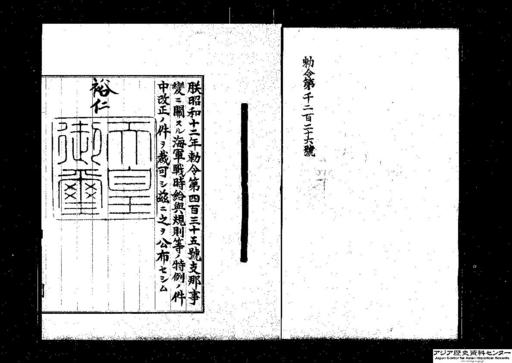 勅令第千二百二十六號
朕昭和十二年勅令第四百三十五號支那事
變ニ關スル海軍戰時給與規則等ノ特例ノ件
中改正ノ件ヲ裁可シ茲ニ之ヲ公布セシム
裕仁
天皇
御璽
アジア歴史資料センター
Japan Center for Asian Historical Records